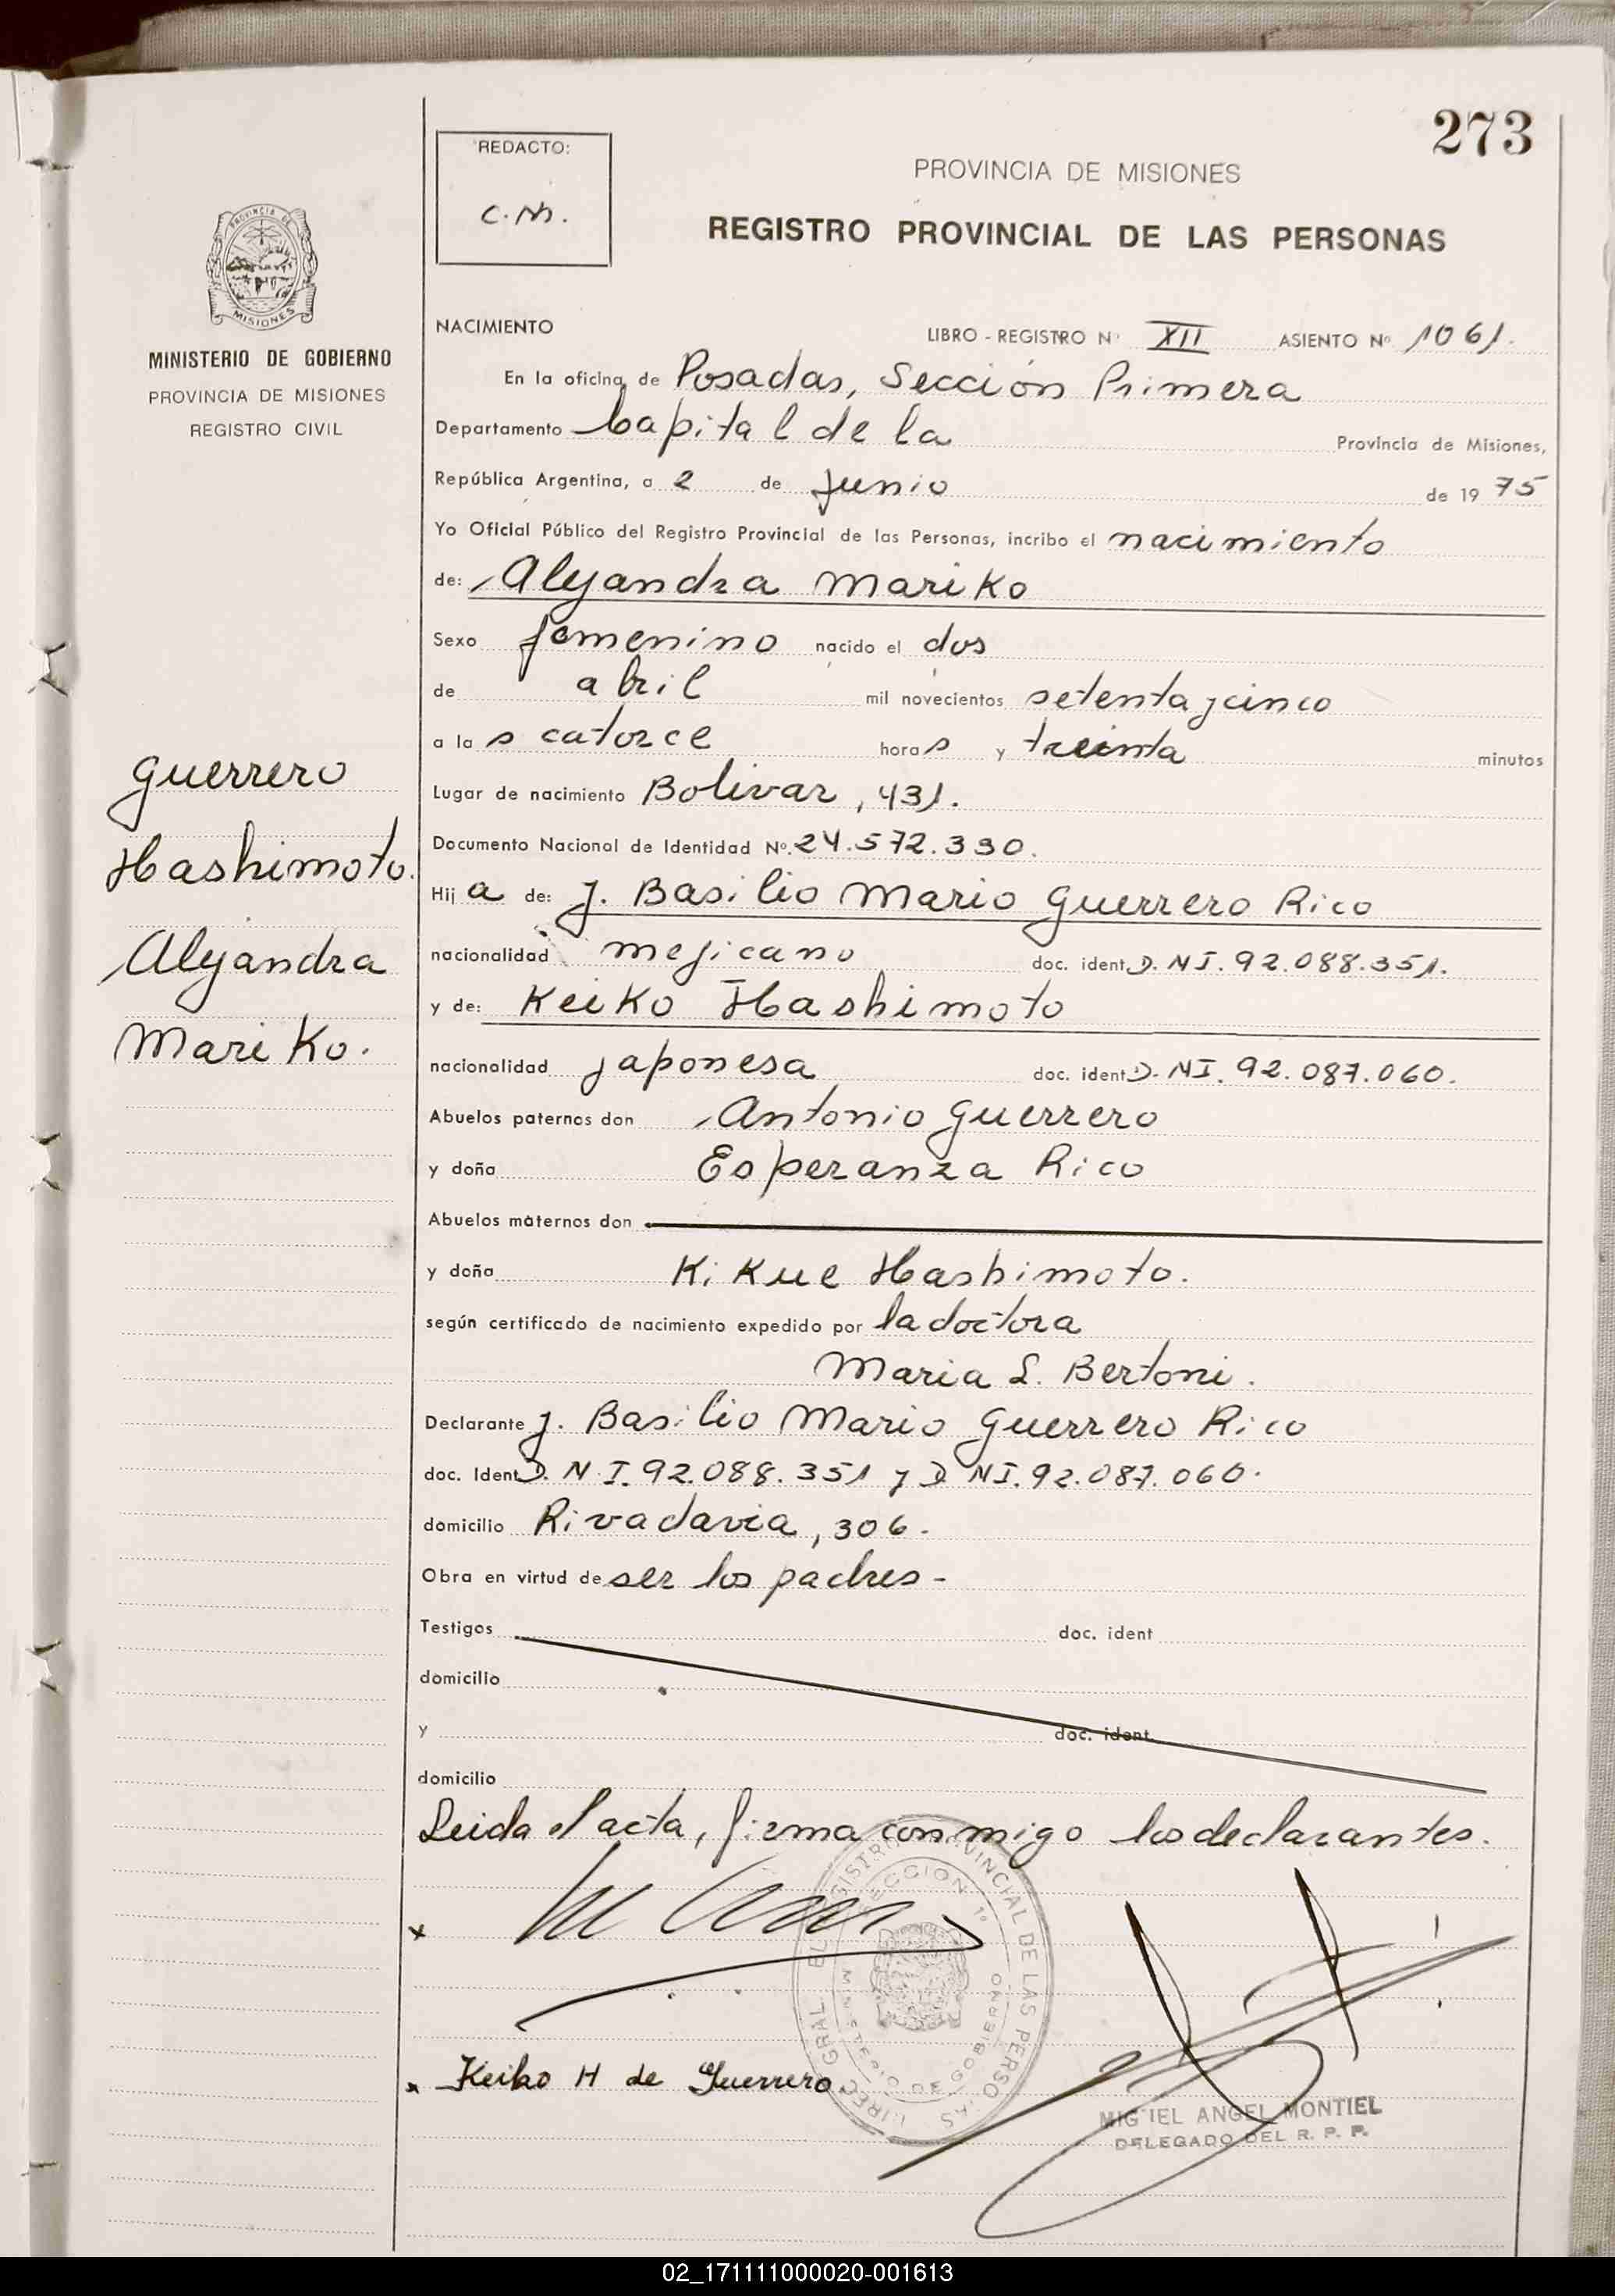 273
REDACTO:
C.M.
PROVINCIA DE MISIONES
REGISTRO PROVINCIAL DE LAS PERSONAS
PROVINCIA DE
MISIONES
MINISTERIO DE GOBIERNO
PROVINCIA DE MISIONES
REGISTRO CIVIL
Guerrero
Hashimoto.
Alejandra
Mariko.
NACIMIENTO LIBRO - REGISTRO Nº XII ASIENTO Nº 1061.
En la oficina de Posadas, Sección Primera
Departamento Capital de la Provincia de Misiones,
República Argentina, a 2 de Junio de 19 75
Yo Oficial Público del Registro Provincial de las Personas, incribo el nacimiento
de: Alejandra Mariko
Sexo femenino nacido el dos
de abril mil novecientos setenta y cinco
a la s catorce hora s y treinta minutos
Lugar de nacimiento Bolivar, 431.
Documento Nacional de Identidad Nº. 24.572.330.
Hij a de: J. Basilio Mario Guerrero Rico
nacionalidad mejicano doc. ident D.NI. 92.088.351.
y de: Keiko Hashimoto
nacionalidad japonesa doc. ident D.NI. 92.087.060.
Abuelos paternos don Antonio Guerrero
y doña Esperanza Rico
Abuelos maternos don
y doña Kikue Hashimoto.
según certificado de nacimiento expedido por la doctora
Maria L. Bertoni.
Declarante J. Basilio Mario Guerrero Rico
doc. Ident D.N.I. 92.088.351 y D NI. 92.087.060.
domicilio Rivadavia, 306.
Obra en virtud de ser los padres -
Testigos doc. ident
domicilio
y doc. ident
domicilio
Leida el acta, firma conmigo los declarantes.
x
x Keiko H de Guerrero
DIREC GRAL EL REGISTRO PROVINCIAL DE LAS PERSONAS
SECCION 1º
MINISTERIO DE GOBIERNO
MIGUEL ANGEL MONTIEL
DELEGADO DEL R. P. P.
02_171111000020-001613